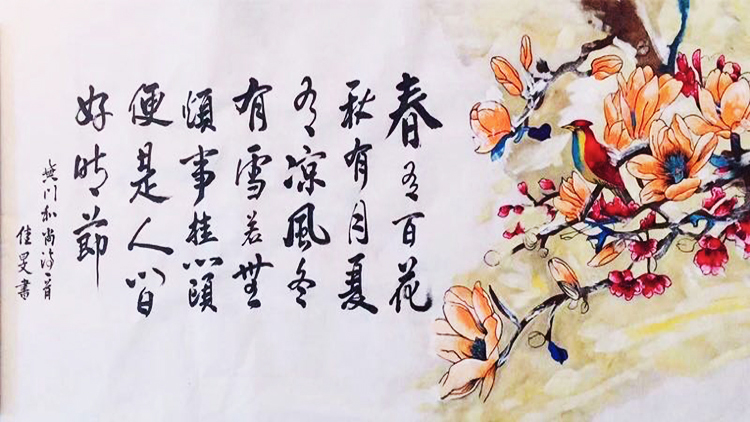 春有百花
秋有月夏
有涼風冬
有雪若無
煩事挂心頭
便是人間
好時節
無门和尚诗一首
佳旻書